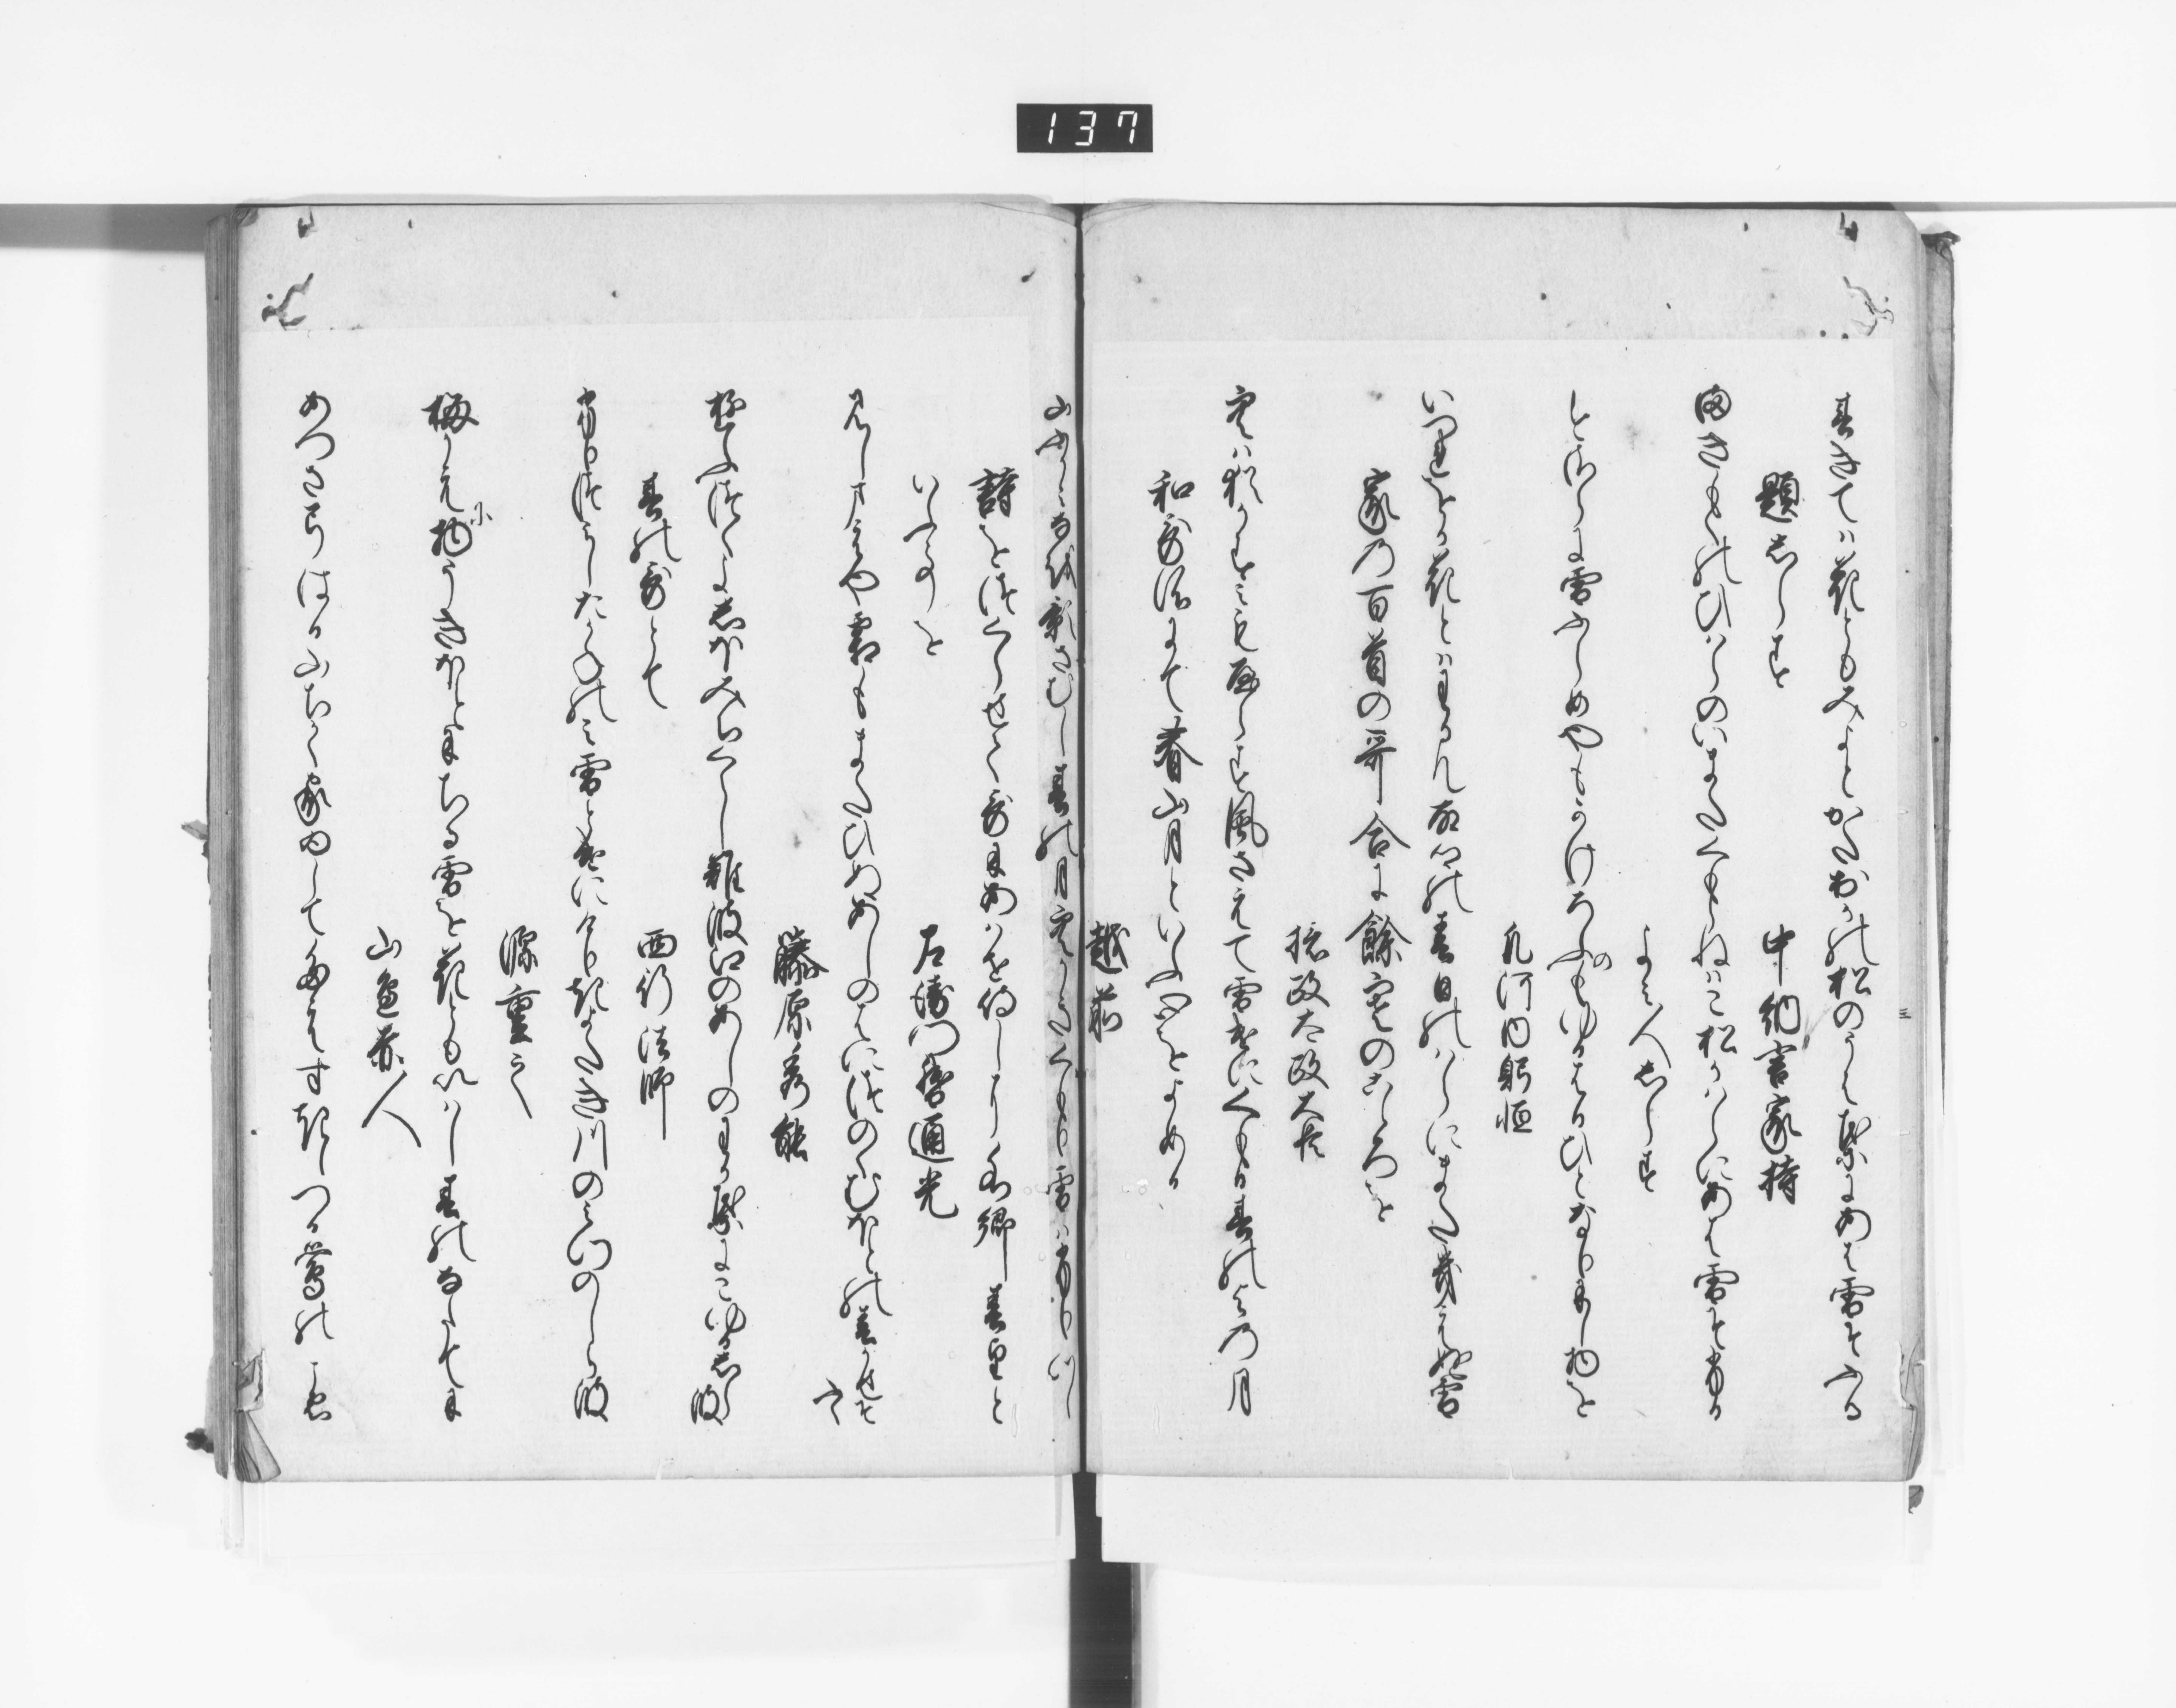 春きてハ花ともみよとかたおかの松のうは葉にあは雪そふる
題しらす
中納言家持
まきもくのひハらのいまたくもらねはこ松かハらにあは雪そふる
よみ人しらす
いまさらに雪ふらめやもかけろふのもゆるはるひとなりにし物を
凡河内躬恒
いつれをか花とハわかん故郷の春日のハらにまたきえぬ雪
家乃百首の哥合に餘寒のこゝろを
摂政太政大臣
空ハ猶かすみもやらす風さえて雪けにくもる春のよ乃月
和哥所にて春山月といふ心をよめる
越前
山ふかみなを影さむし春の月空かきくもり雪ハふりつゝ
詩をつくらせて哥にあハせ侍しに水郷春望と
いふ事を
左衛門督通光
みしま江や霜もまたひぬあしのはにつのくむほとの春かせそ
ふく
藤原秀能
夕月夜しほみちくらし難波江のあしのわか葉にこゆる白波
春の哥とて
西行法師
ふりつみしたかねのみ雪とけにけり清たき川の水のしら波
源重之
梅かえに物うきほとにちる雪を花ともいハし春のなたてに
山邊赤人
あつさ弓はる山ちかく家ゐしてたえすきゝつる鶯のこゑ